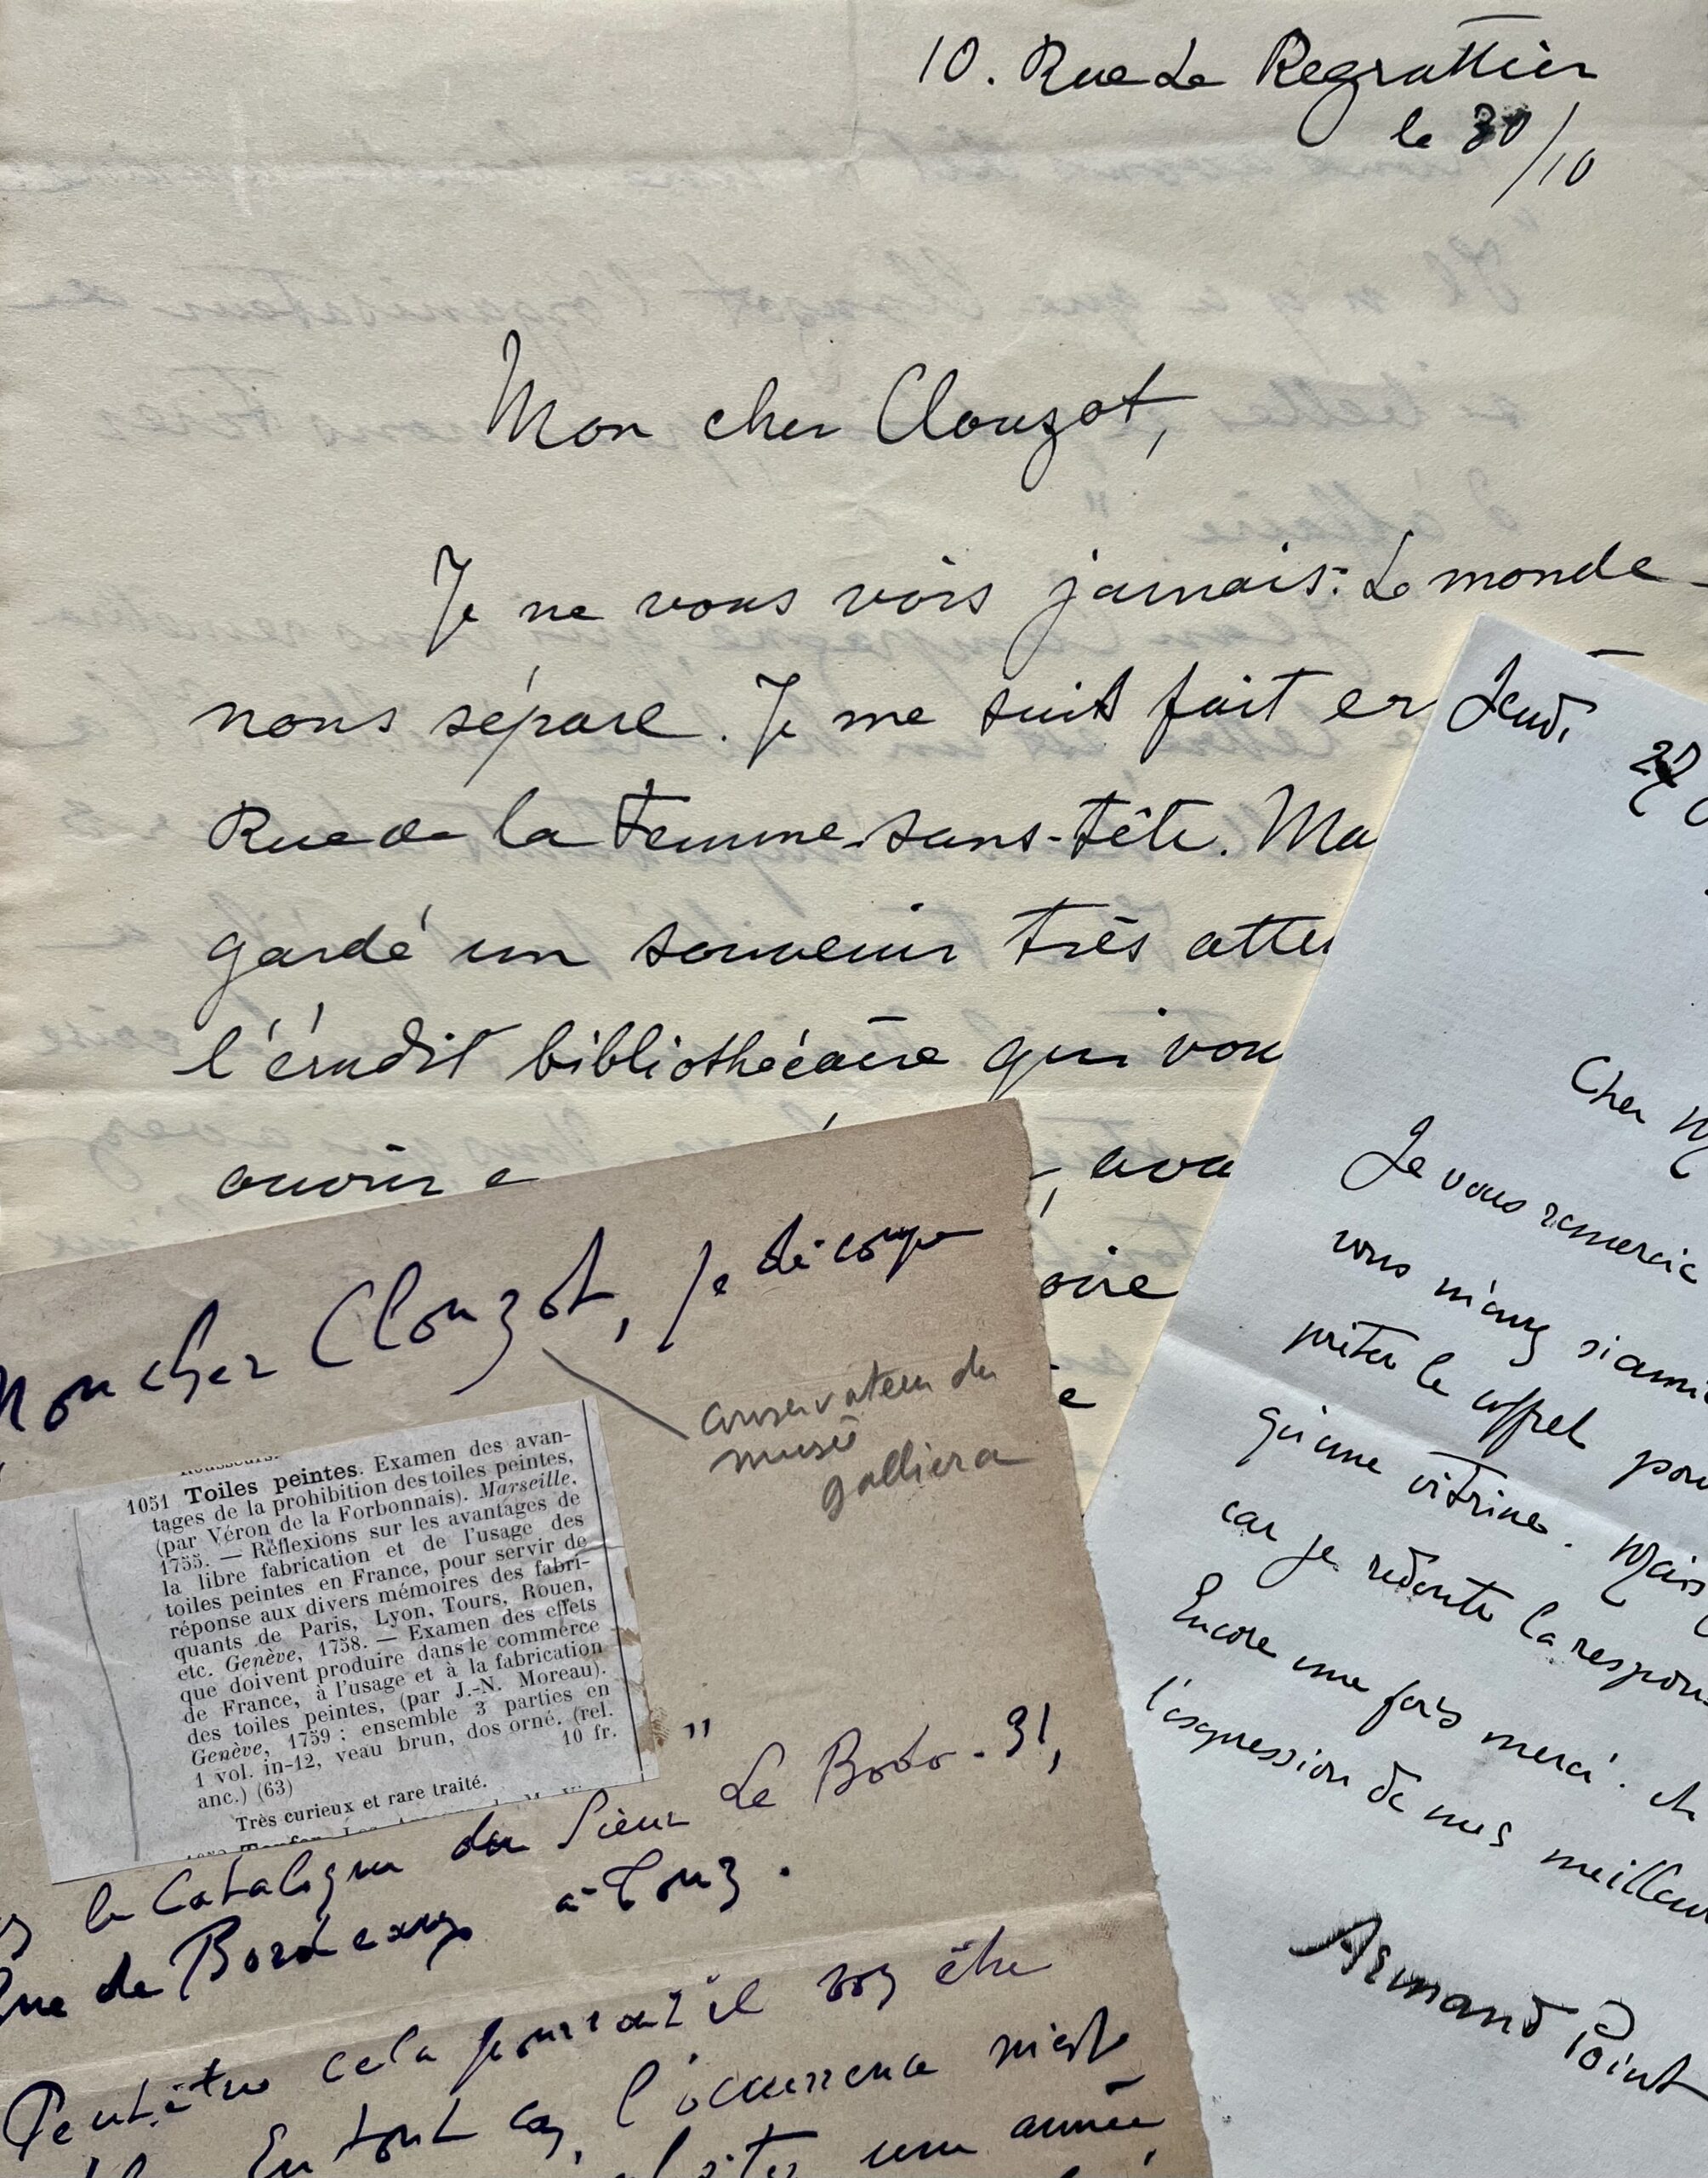 10. Rue Le Regrattier
le 30/10
Mon cher Clouzot,
Je ne vous vois jamais: Le monde
nous sépare. Je me suis fait er
Rue de la Femme-sans-tête. Ma
gardé un souvenir très atte
l'érudit bibliothécaire qui vou
ouvrir e , ava
oire
e
Mon cher Clouzot, je découpe
conservateur du
musée
galliera
1051 Toiles peintes. Examen des avan-
tages de la prohibition des toiles peintes,
(par Véron de la Forbonnais). Marseille,
1755. — Réflexions sur les avantages de
la libre fabrication et de l'usage des
toiles peintes en France, pour servir de
réponse aux divers mémoires des fabri-
quants de Paris, Lyon, Tours, Rouen,
etc. Genève, 1758. — Examen des effets
que doivent produire dans le commerce
de France, à l'usage et à la fabrication
des toiles peintes, (par J.-N. Moreau).
Genève, 1759 : ensemble 3 parties en
1 vol. in-12, veau brun, dos orné. (rel.
anc.) (63) 10 fr.
Très curieux et rare traité.
"
le Catalogue du Sieur Le Bodo - 31,
Rue de Bordeaux à Tours.
Peut-être cela pourrait il vous être
En tout cas, l'occurrence m'est
une année
Jeudi 27
Cher M
Je vous remercie
vous m'avez si ami
prêter le coffret pou
qu'une vitrine. Mais
car je redoute la respon
Encore une fois merci. et
l'expression de mes meilleur
Armand Point